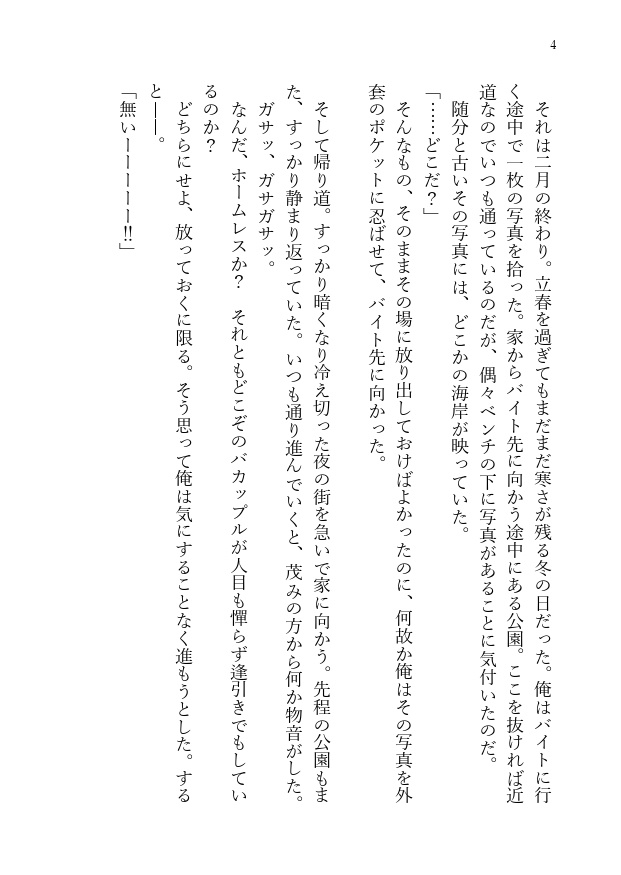 4
　それは二月の終わり。立春を過ぎてもまだまだ寒さが残る冬の日だった。俺はバイトに行
く途中で一枚の写真を拾った。家からバイト先に向かう途中にある公園。ここを抜ければ近
道なのでいつも通っているのだが、偶々ベンチの下に写真があることに気付いたのだ。
　随分と古いその写真には、どこかの海岸が映っていた。
「……どこだ？」
　そんなもの、そのままその場に放り出しておけばよかったのに、何故か俺はその写真を外
套のポケットに忍ばせて、バイト先に向かった。
　そして帰り道。すっかり暗くなり冷え切った夜の街を急いで家に向かう。先程の公園もま
た、すっかり静まり返っていた。いつも通り進んでいくと、茂みの方から何か物音がした。
　ガサッ、ガサガサッ。
　なんだ、ホームレスか？　それともどこぞのバカップルが人目も憚らず逢引きでもしてい
るのか？
　どちらにせよ、放っておくに限る。そう思って俺は気にすることなく進もうとした。する
と――。
「無いーーーーー!!」